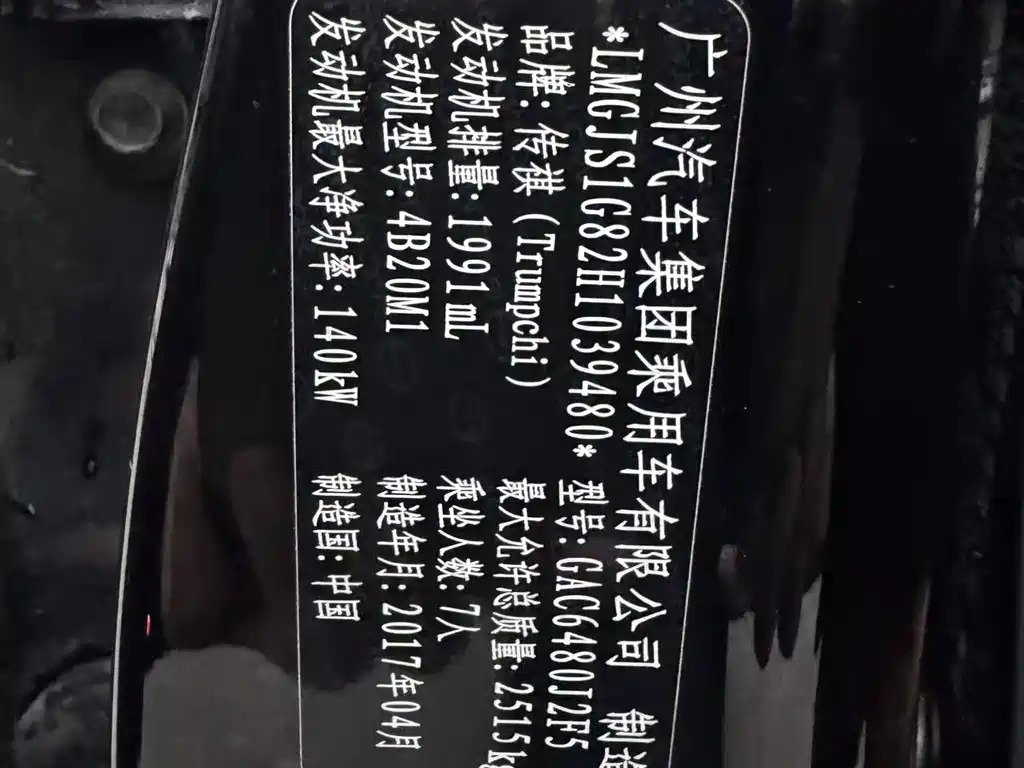 广州汽车集团乘用车有限公司 制造
*LMGJS1G82H1039480* 型号:GAC6480J2F5
品牌:传祺(Trumpchi) 最大允许总质量:2515kg
发动机排量:1991mL 乘坐人数:7人
发动机型号:4B20M1 制造年月:2017年04月
发动机最大净功率:140kW 制造国:中国